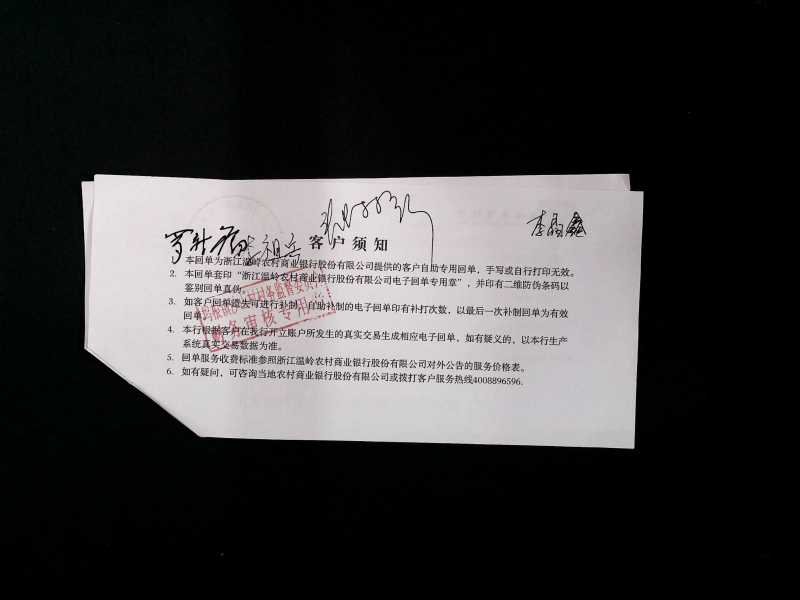 客户须知
1. 本回单为浙江温岭农村商业银行股份有限公司提供的客户自助专用回单，手写或自行打印无效。
2. 本回单套印“浙江温岭农村商业银行股份有限公司电子回单专用章”，并印有二维防伪条码以
签别回单真伪。
3. 如客户回单遗失可进行补制，自助补制的电子回单印有补打次数，以最后一次补制回单为有效
回单。
4. 本行根据客户在我行开立账户所发生的真实交易生成相应电子回单，如有疑义，以本行生产
系统真实交易数据为准。
5. 回单服务收费标准参照浙江温岭农村商业银行股份有限公司对外公告的服务价格表。
6. 如有疑问，可咨询当地农村商业银行股份有限公司或拨打客户服务热线4008896596.
村务监督委员会
财务审核专用章